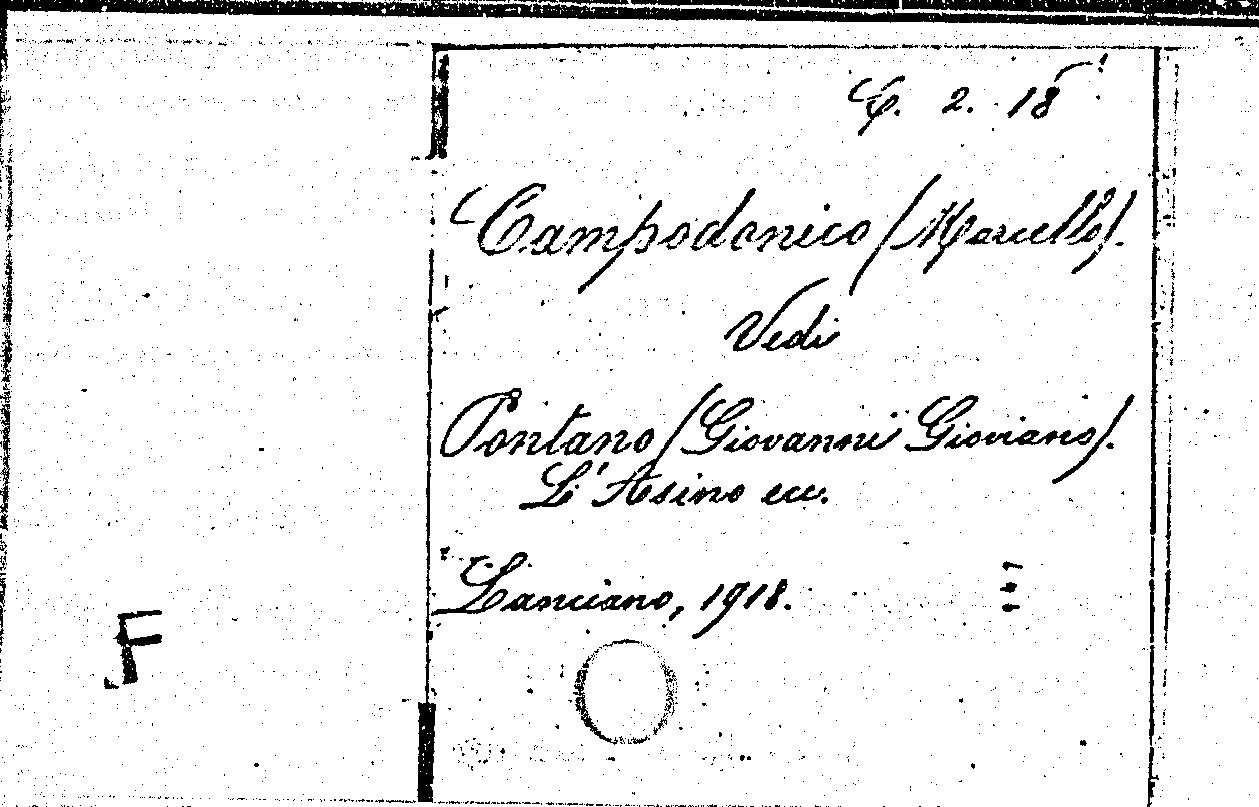 C. 2. 18
Campodonico (Marcello).
Vedi
Pontano (Giovanni Gioviano).
L'Asino ecc.
Lanciano, 1918.
F